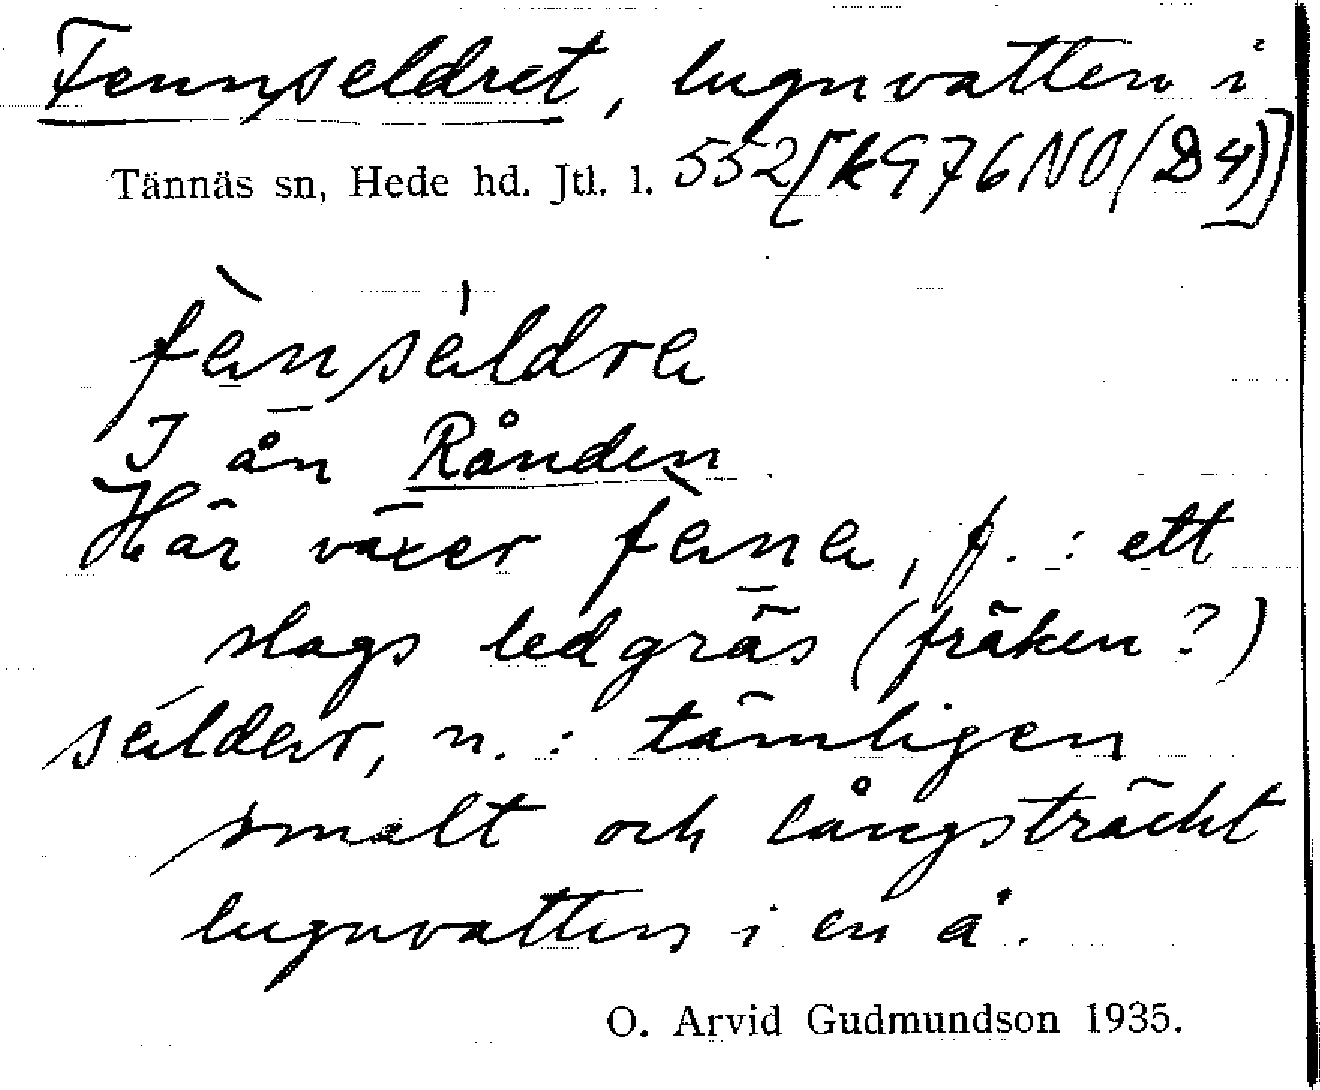 Fennseldret, lugnvatten i
Tännäs sn, Hede hd. Jtl. l. 552[k976NO(D4)]
fènsèldre
I ån Rånden
Här växer fène, f. : ett
slags ledgräs (fräken?)
sélder, n. : tämligen
smalt och långsträckt
lugnvatten i en å.
O. Arvid Gudmundson 1935.